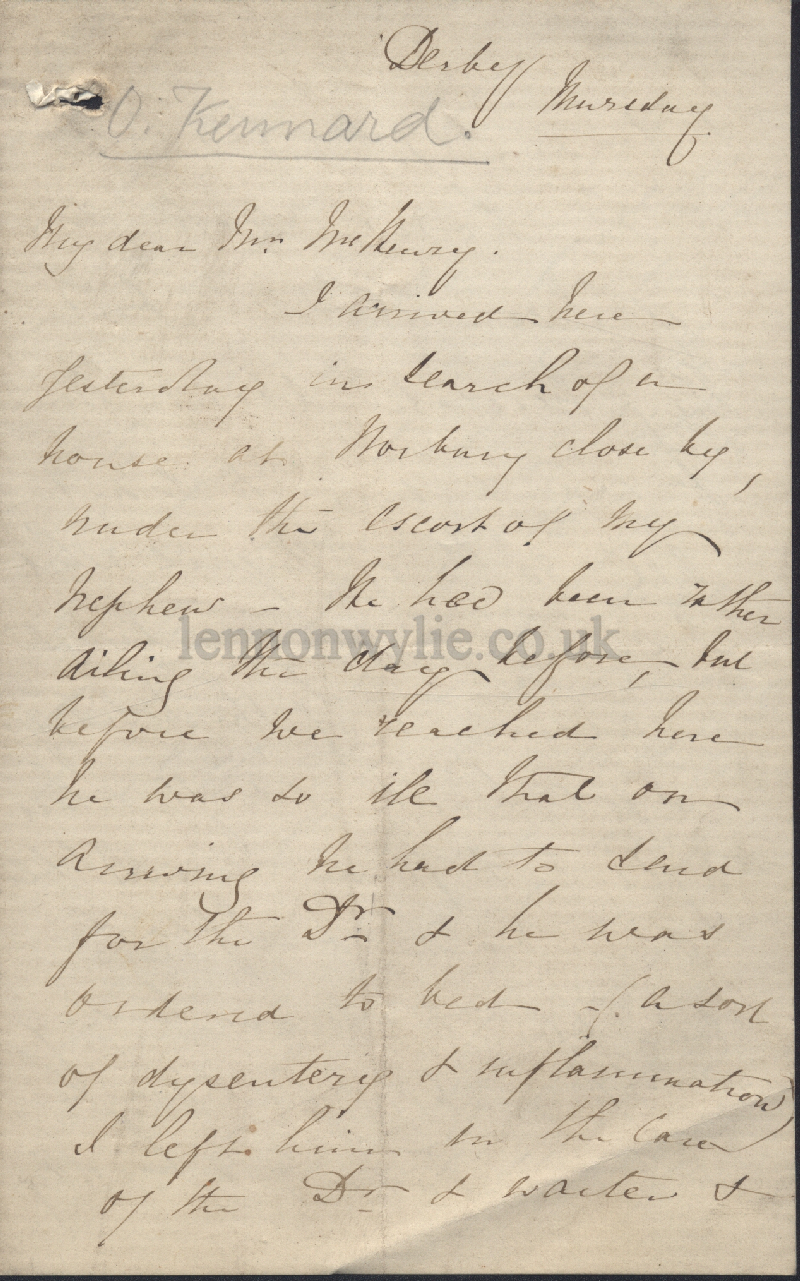 Derby
Thursday
O. Kennard.
My dear Mrs McHenry.
I arrived here
yesterday in search of a
house at Norbury close by,
under the escort of my
nephew - He had been rather
ailing the day before, but
before we reached here
he was so ill that on
arriving he had to send
for the Dr & he was
ordered to bed - (a sort
of dysentery & inflammation)
I left him in the care
of the Dr & waiter &
lennonwylie.co.uk